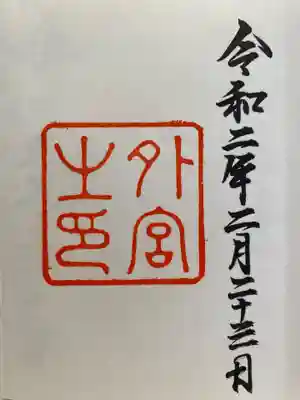 令和二年二月二十三日
外宮
之印